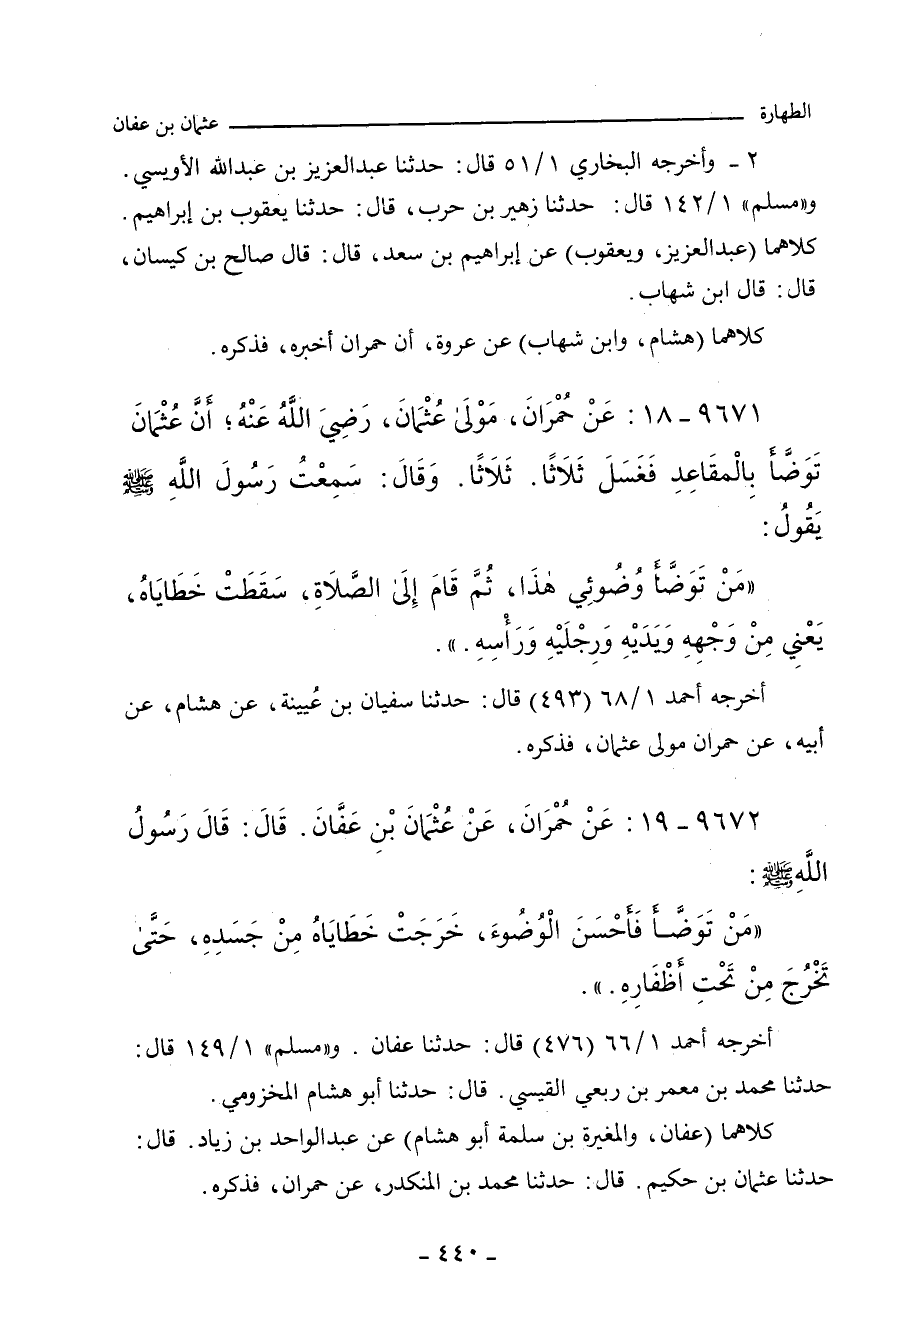 الطهارة ــــــــــــ عثمان بن عفان
٢ ـ وأخرجه البخاري ٥١/١ قال: حدثنا عبدالعزيز بن عبدالله الأويسي.
و«مسلم» ١٤٢/١ قال: حدثنا زهير بن حرب، قال: حدثنا يعقوب بن إبراهيم.
كلاهما (عبدالعزيز، ويعقوب) عن إبراهيم بن سعد، قال: قال صالح بن كيسان،
قال: قال ابن شهاب.
كلاهما (هشام، وابن شهاب) عن عروة، أن حمران أخبره، فذكره.
٩٦٧١ ـ ١٨ : عَنْ حُمْرَانَ، مَوْلَىٰ عُثْمَانَ، رَضِيَ اللَّهُ عَنْهُ؛ أَنَّ عُثْمَانَ
تَوَضَّأَ بِالْمقَاعِدِ فَغَسَلَ ثَلَاثًا. ثَلَاثًا. وَقَالَ: سَمِعْتُ رَسُولَ اللَّهِ ﷺ
يَقُولُ:
«مَنْ تَوَضَّأَ وُضُوئِي هٰذَا، ثُمَّ قَامَ إِلَىٰ الصَّلَاةِ، سَقَطَتْ خَطَايَاهُ،
يَعْنِي مِنْ وَجْهِهِ وَيَدَيْهِ وَرِجْلَيْهِ وَرَأْسِهِ.».
أخرجه أحمد ٦٨/١ (٤٩٣) قال: حدثنا سفيان بن عُيينة، عن هشام، عن
أبيه، عن حمران مولى عثمان، فذكره.
٩٦٧٢ ـ ١٩ : عَنْ حُمْرَانَ، عَنْ عُثْمَانَ بْنِ عَفَّانَ. قَالَ: قَالَ رَسُولُ
اللَّهِ ﷺ :
«مَنْ تَوَضَّأَ فَأَحْسَنَ الْوُضُوءَ، خَرَجَتْ خَطَايَاهُ مِنْ جَسَدِهِ، حَتَّىٰ
تَخْرُجَ مِنْ تَحْتِ أَظْفَارِهِ.».
أخرجه أحمد ٦٦/١ (٤٧٦) قال: حدثنا عفان . و«مسلم» ١٤٩/١ قال:
حدثنا محمد بن معمر بن ربعي القيسي. قال: حدثنا أبو هشام المخزومي.
كلاهما (عفان، والمغيرة بن سلمة أبو هشام) عن عبدالواحد بن زياد. قال:
حدثنا عثمان بن حكيم. قال: حدثنا محمد بن المنكدر، عن حمران، فذكره.
ـ ٤٤٠ ـ